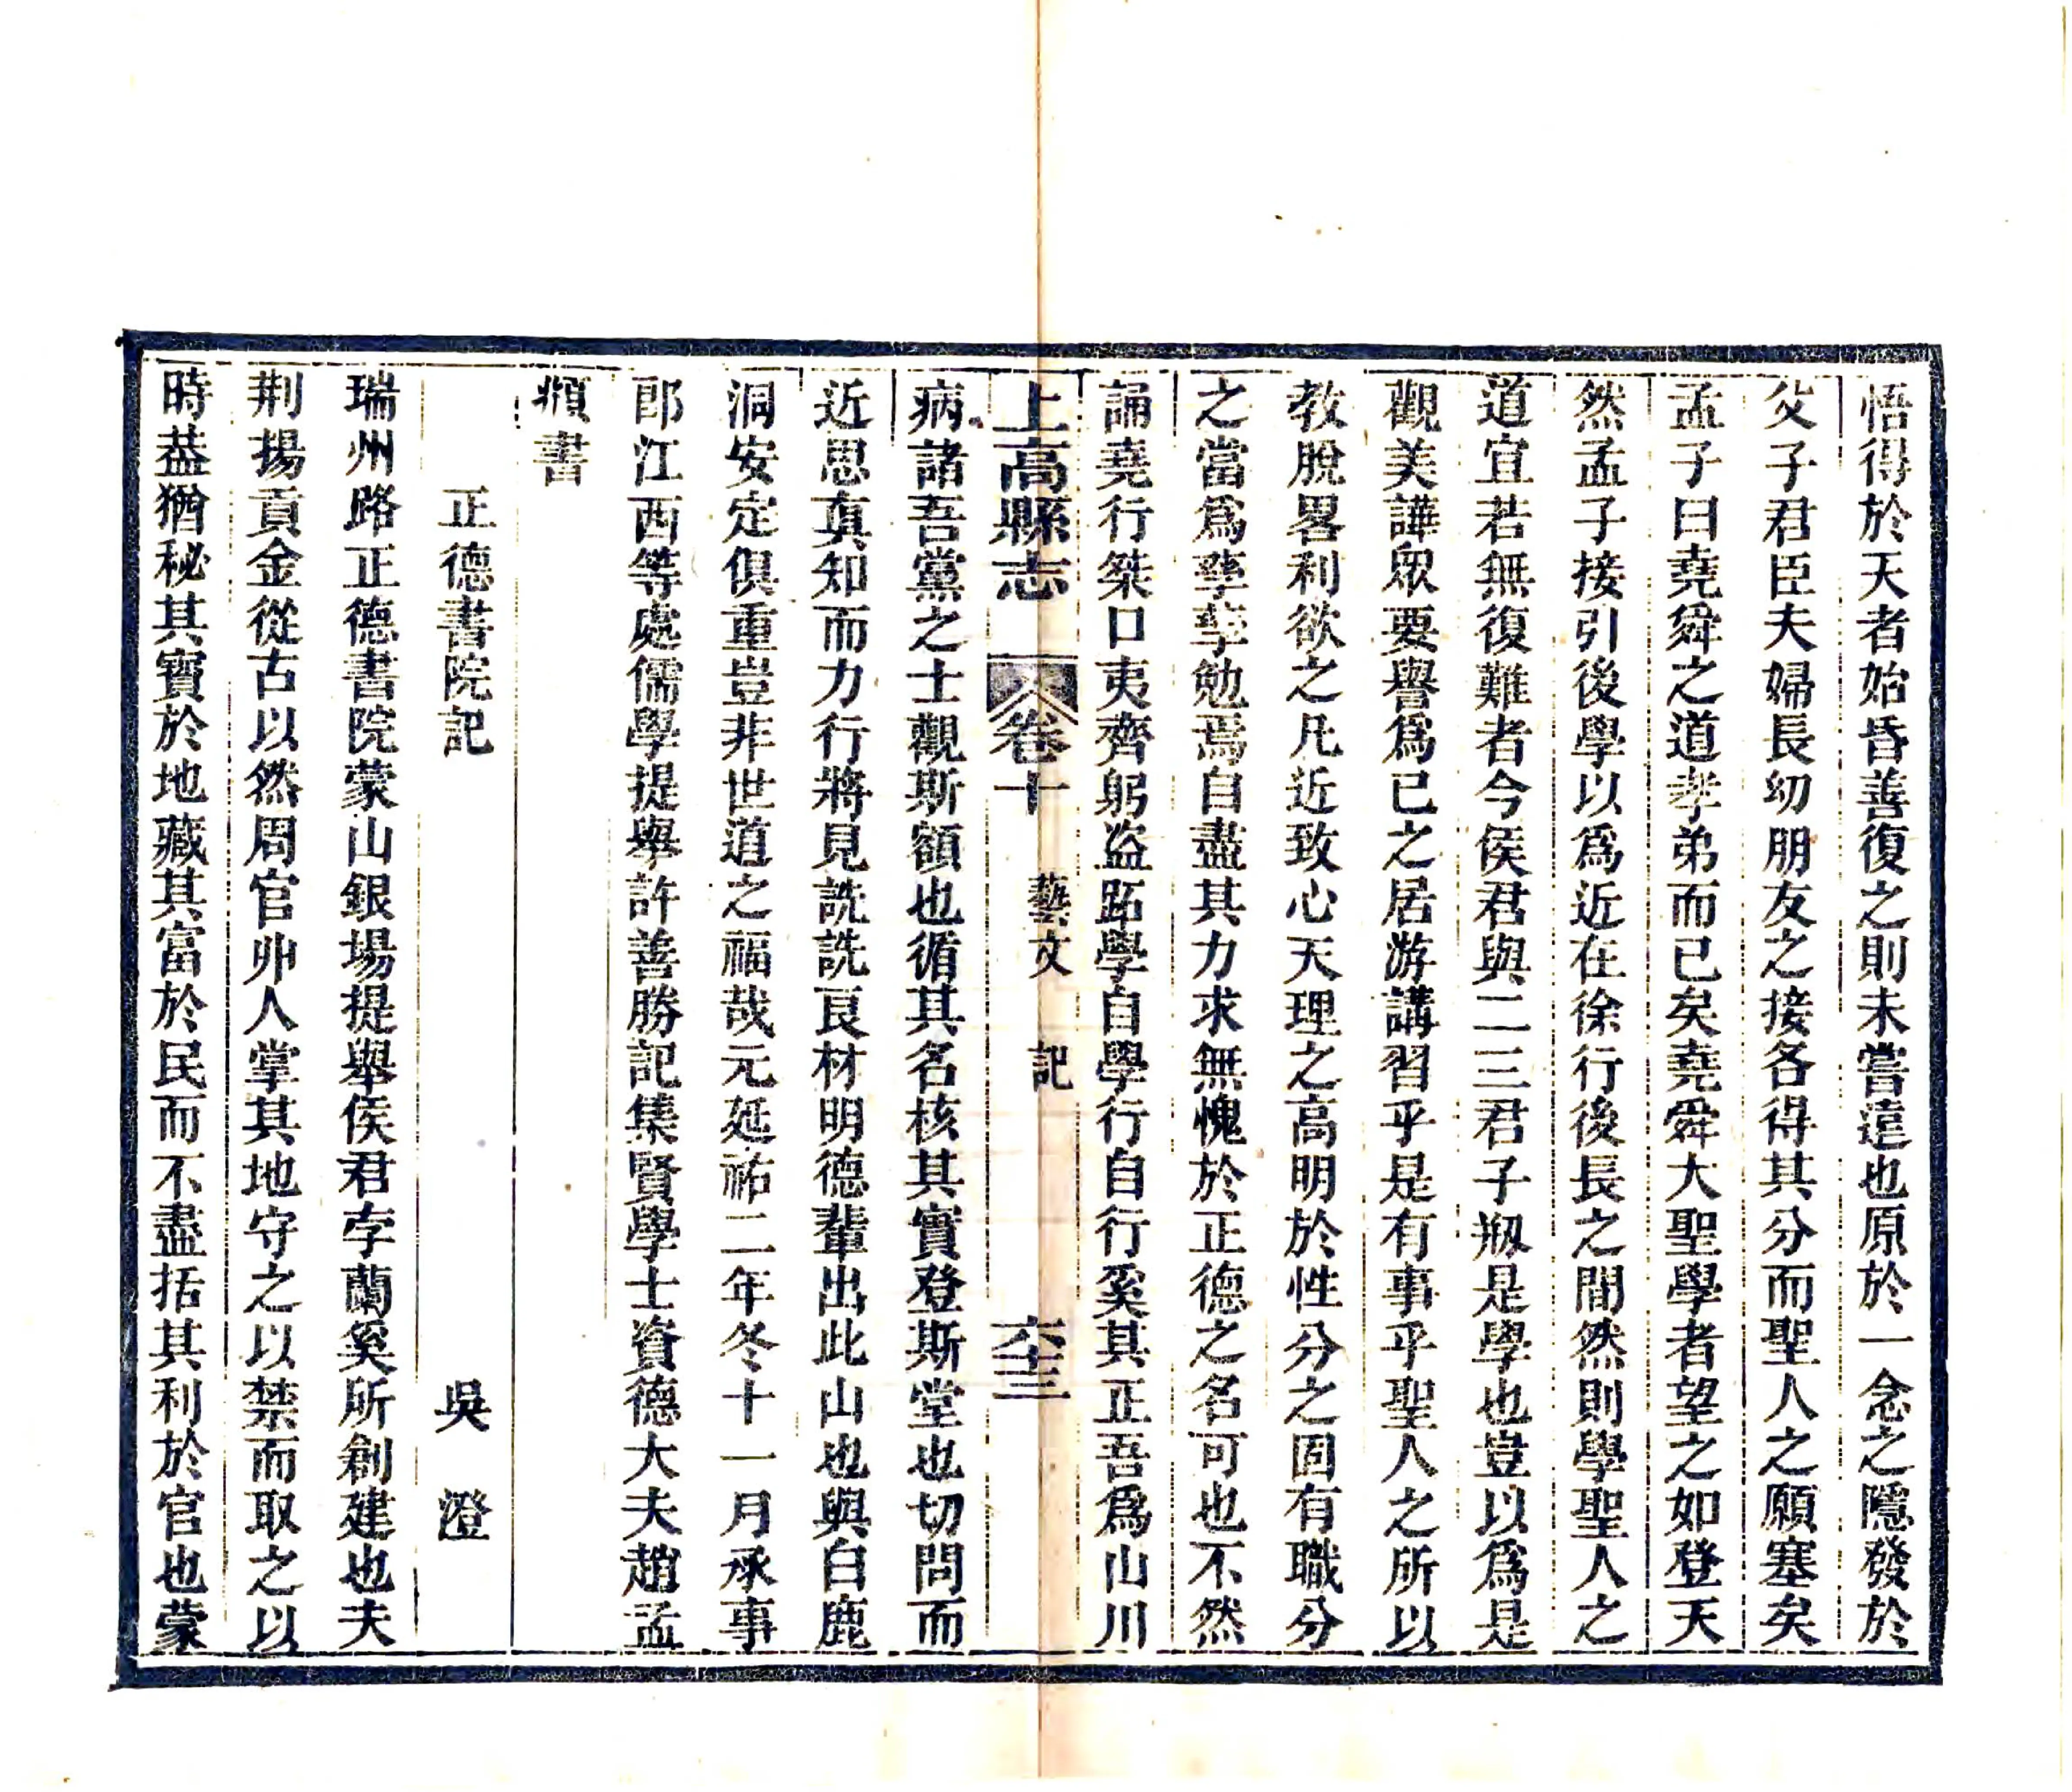 悟得於天者始昏善復之則未嘗遠也原於一念之隱發於
父子君臣夫婦長幼朋友之接各得其分而聖人之願塞矣
孟子曰堯舜之道孝弟而已矣堯舜大聖學者望之如登天
然孟子接引後學以爲近在徐行後長之間然則學聖人之
道宜若無復難者今侯君與二三君子剏是學也豈以爲是
觀美譁眾要譽爲已之居游講習乎是有事乎聖人之所以
教脫畧利欲之凡近致心天理之高明於性分之固有職分
之當爲孳孳勉焉自盡其力求無愧於正德之名可也不然
誦堯行桀口夷齊躬盜跖學自學行自行奚其正吾爲山川
上高縣志 卷十 藝文 記 六十三
病諸吾黨之士觀斯額也循其名核其實登斯堂也切問而
近思真知而力行將見詵詵良材明德輩出此山也與白鹿
洞安定俱重豈非世道之福哉元延祐二年冬十一月承事
郎江西等處儒學提舉許善勝記集賢學士資德大夫趙孟
頫書
正德書院記 吳澄
瑞州路正德書院蒙山銀場提舉侯君孛蘭奚所創建也夫
荆揚貢金從古以然周官卝人掌其地守之以禁而取之以
時葢猶秘其寶於地藏其富於民而不盡括其利於官也蒙